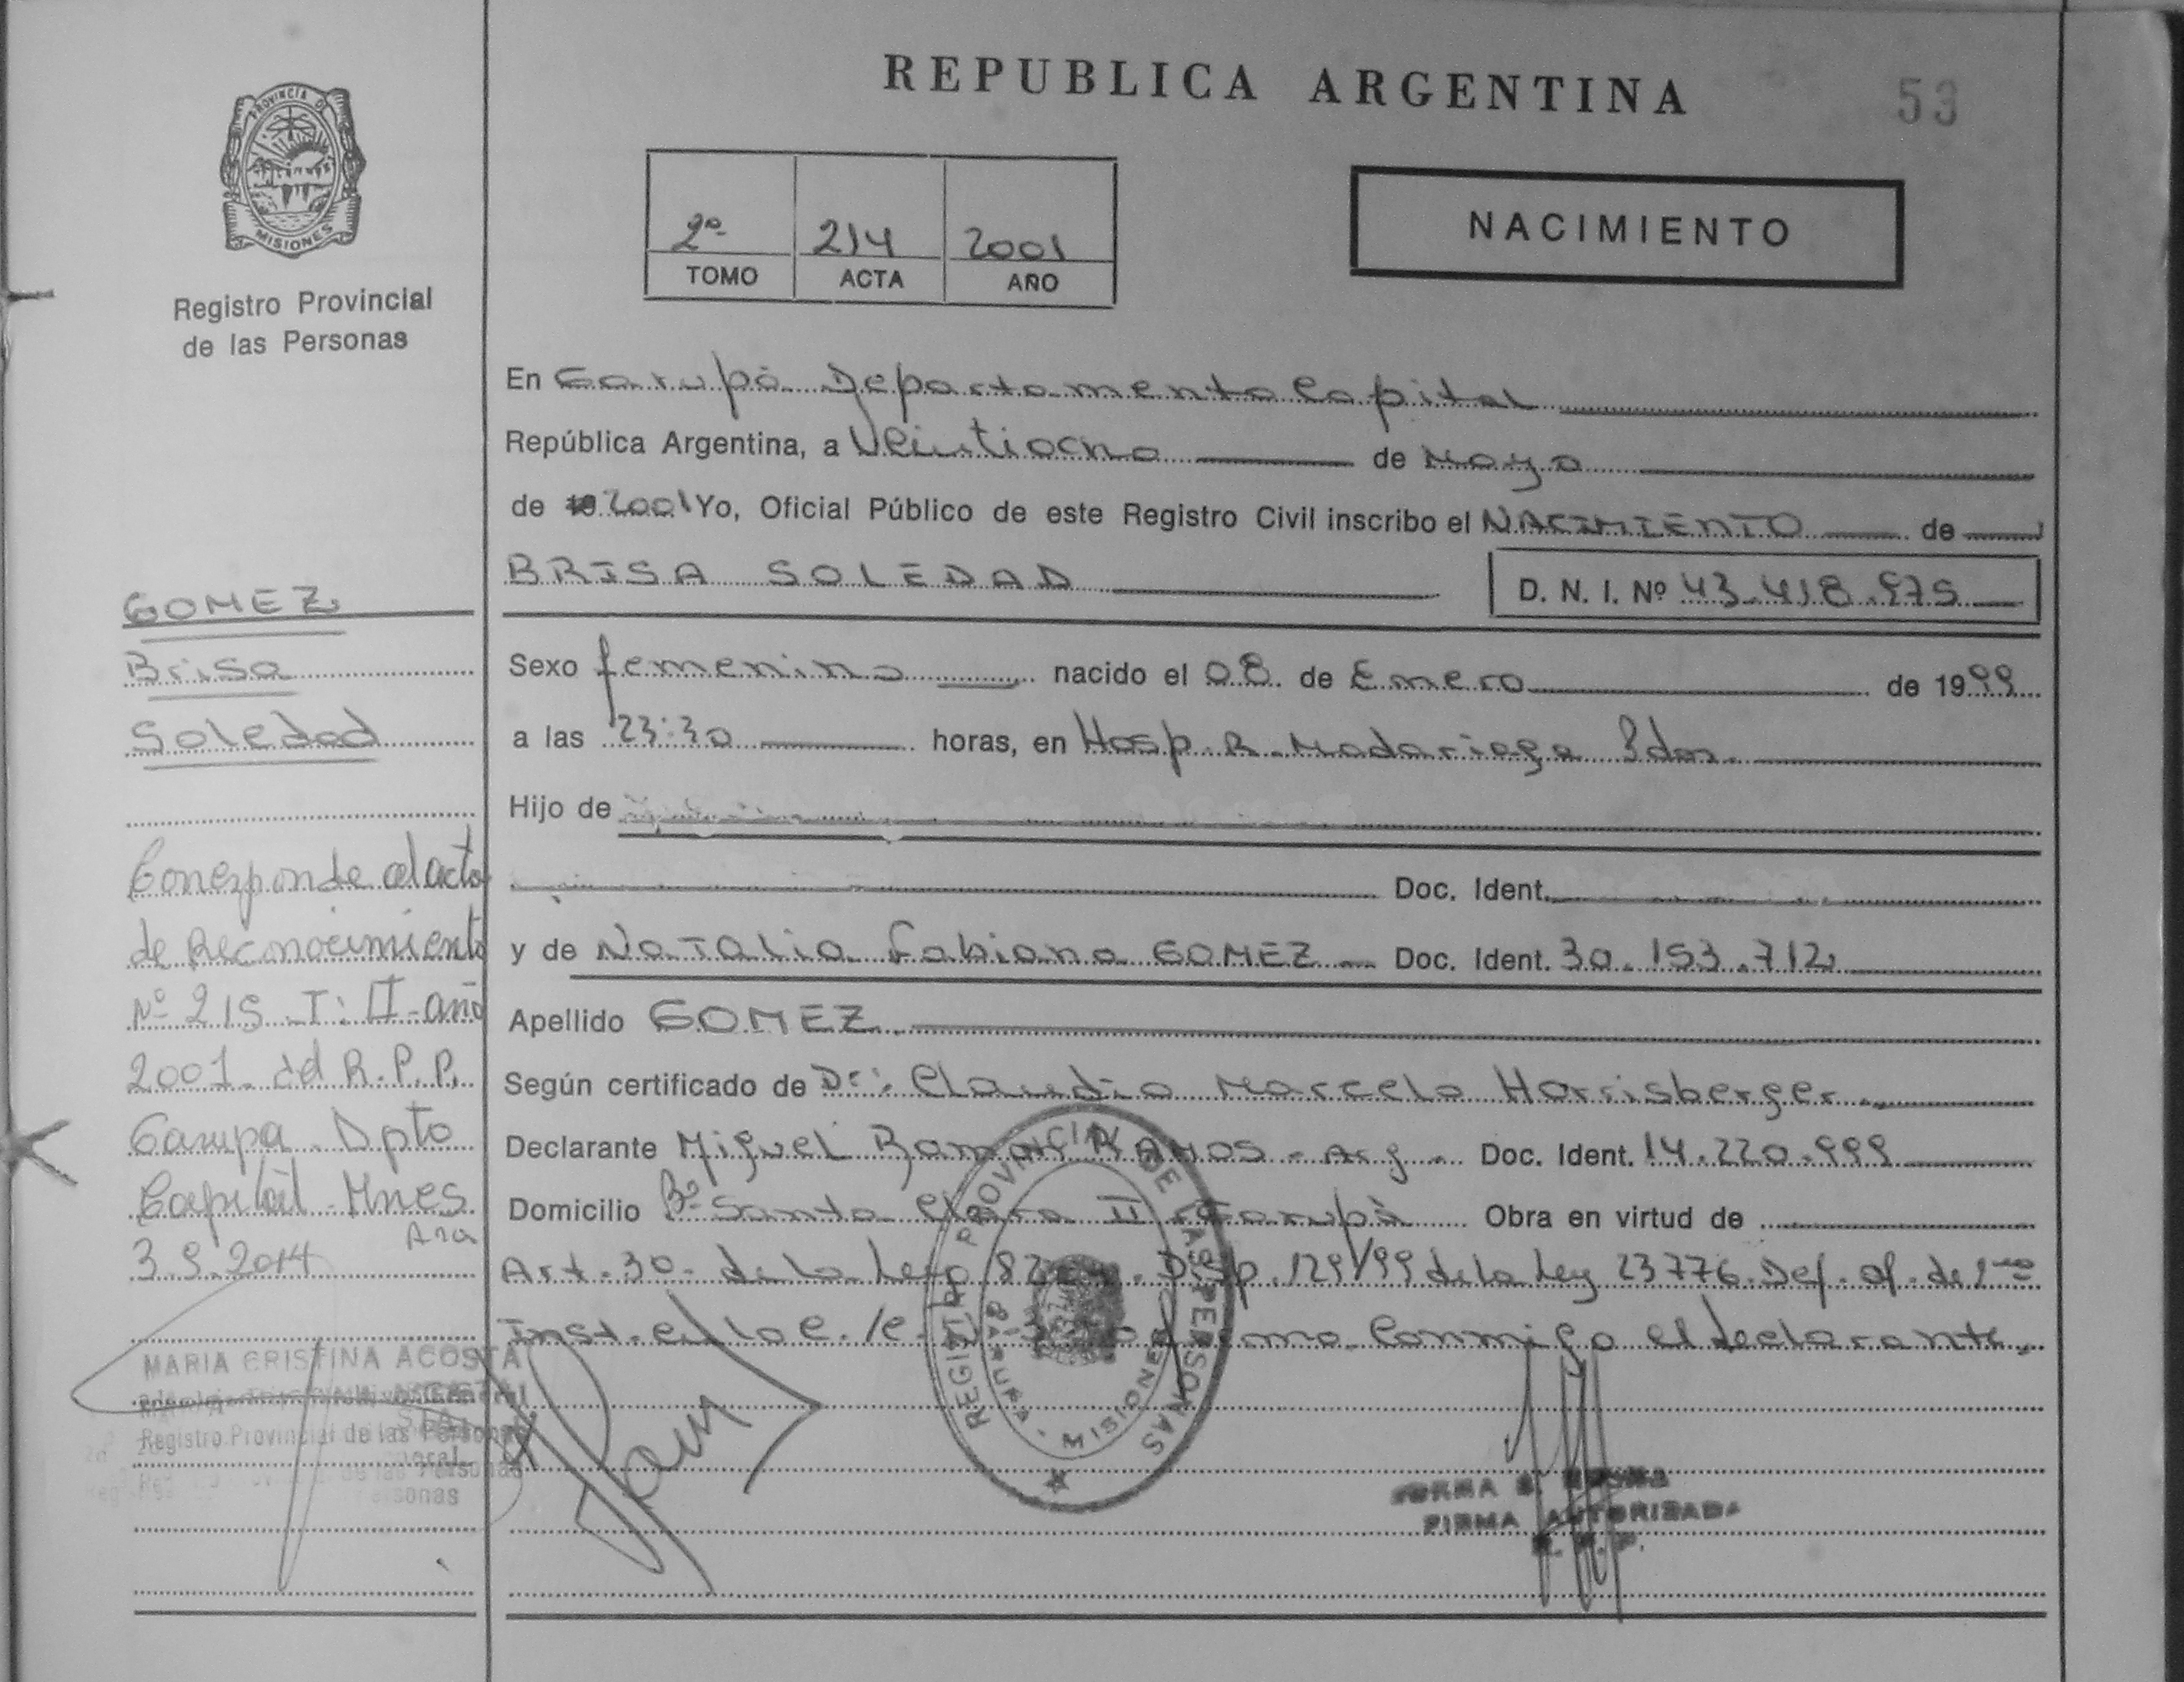 REPUBLICA ARGENTINA
53
PROVINCIA DE
MISIONES
Registro Provincial
de las Personas
2º 214 2001
TOMO ACTA AÑO
NACIMIENTO
En Garupá Departamento Capital
República Argentina, a Veintiocho de Mayo
de 19 2001 Yo, Oficial Público de este Registro Civil inscribo el NACIMIENTO de
BRISA SOLEDAD
D. N. I. Nº 43.418.975
Sexo femenino nacido el 08 de Enero de 1999
a las 23:30 horas, en Hosp. R. Madariaga Pdas.
Hijo de
Doc. Ident.
y de Natalia Fabiana GOMEZ Doc. Ident. 30.153.712
Apellido GOMEZ
Según certificado de Dr: Claudio Marcelo Horrisberger
Declarante Miguel Ramon RAMOS - Arg - Doc. Ident. 14.220.999
Domicilio Bº Santa Clara II Garupá Obra en virtud de
Art. 30 de la Ley Disp. 129/99 de la Ley 23776. Def. Of. de 1ra
Inst. en lo C. /C. Conmigo el declarante.
GOMEZ
Brisa
Soledad
Corresponde al acta
de Reconocimiento
Nº 215 T: II - año
2001 del R.P.P.
Garupa Dpto
Capital - Mnes
3.9.2014
MARIA CRISTINA ACOSTA
Registro Provincial de las Personas
REGISTRO PROVINCIAL DE LAS PERSONAS
GARUPA - MISIONES
FIRMA AUTORIZADA